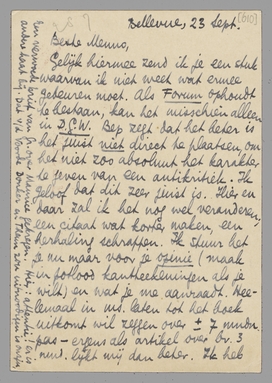 Bellevue, 23 Sept.
[610]
Beste Menno,
Gelijk hiermee zend ik je een stuk
waarvan ik niet weet wat ermee
gebeuren moet. Als Forum ophoudt
te bestaan, kan het misschien alleen
in D.G.W. Bep zegt dat het beter is
het juist niet direct te plaatsen, om
het niet zoo absoluut het karakter
te geven van een antikritiek. Ik
geloof dat dit zeer juist is. Hier en
daar zal ik het nog wel veranderen,
een citaat wat korter maken, een
herhaling schrappen. Ik stuur het
je nu maar voor je opinie (maak
in potlood kantteekeningen als je
wilt) en wat je me aanraadt. Hee-
lemaal in ms. laten tot het boek
uitkomt wil zeggen over ± 7 maan-
den pas – ergens als artikel over bv. 3
mnd. lijkt mij dan beter. Ik heb